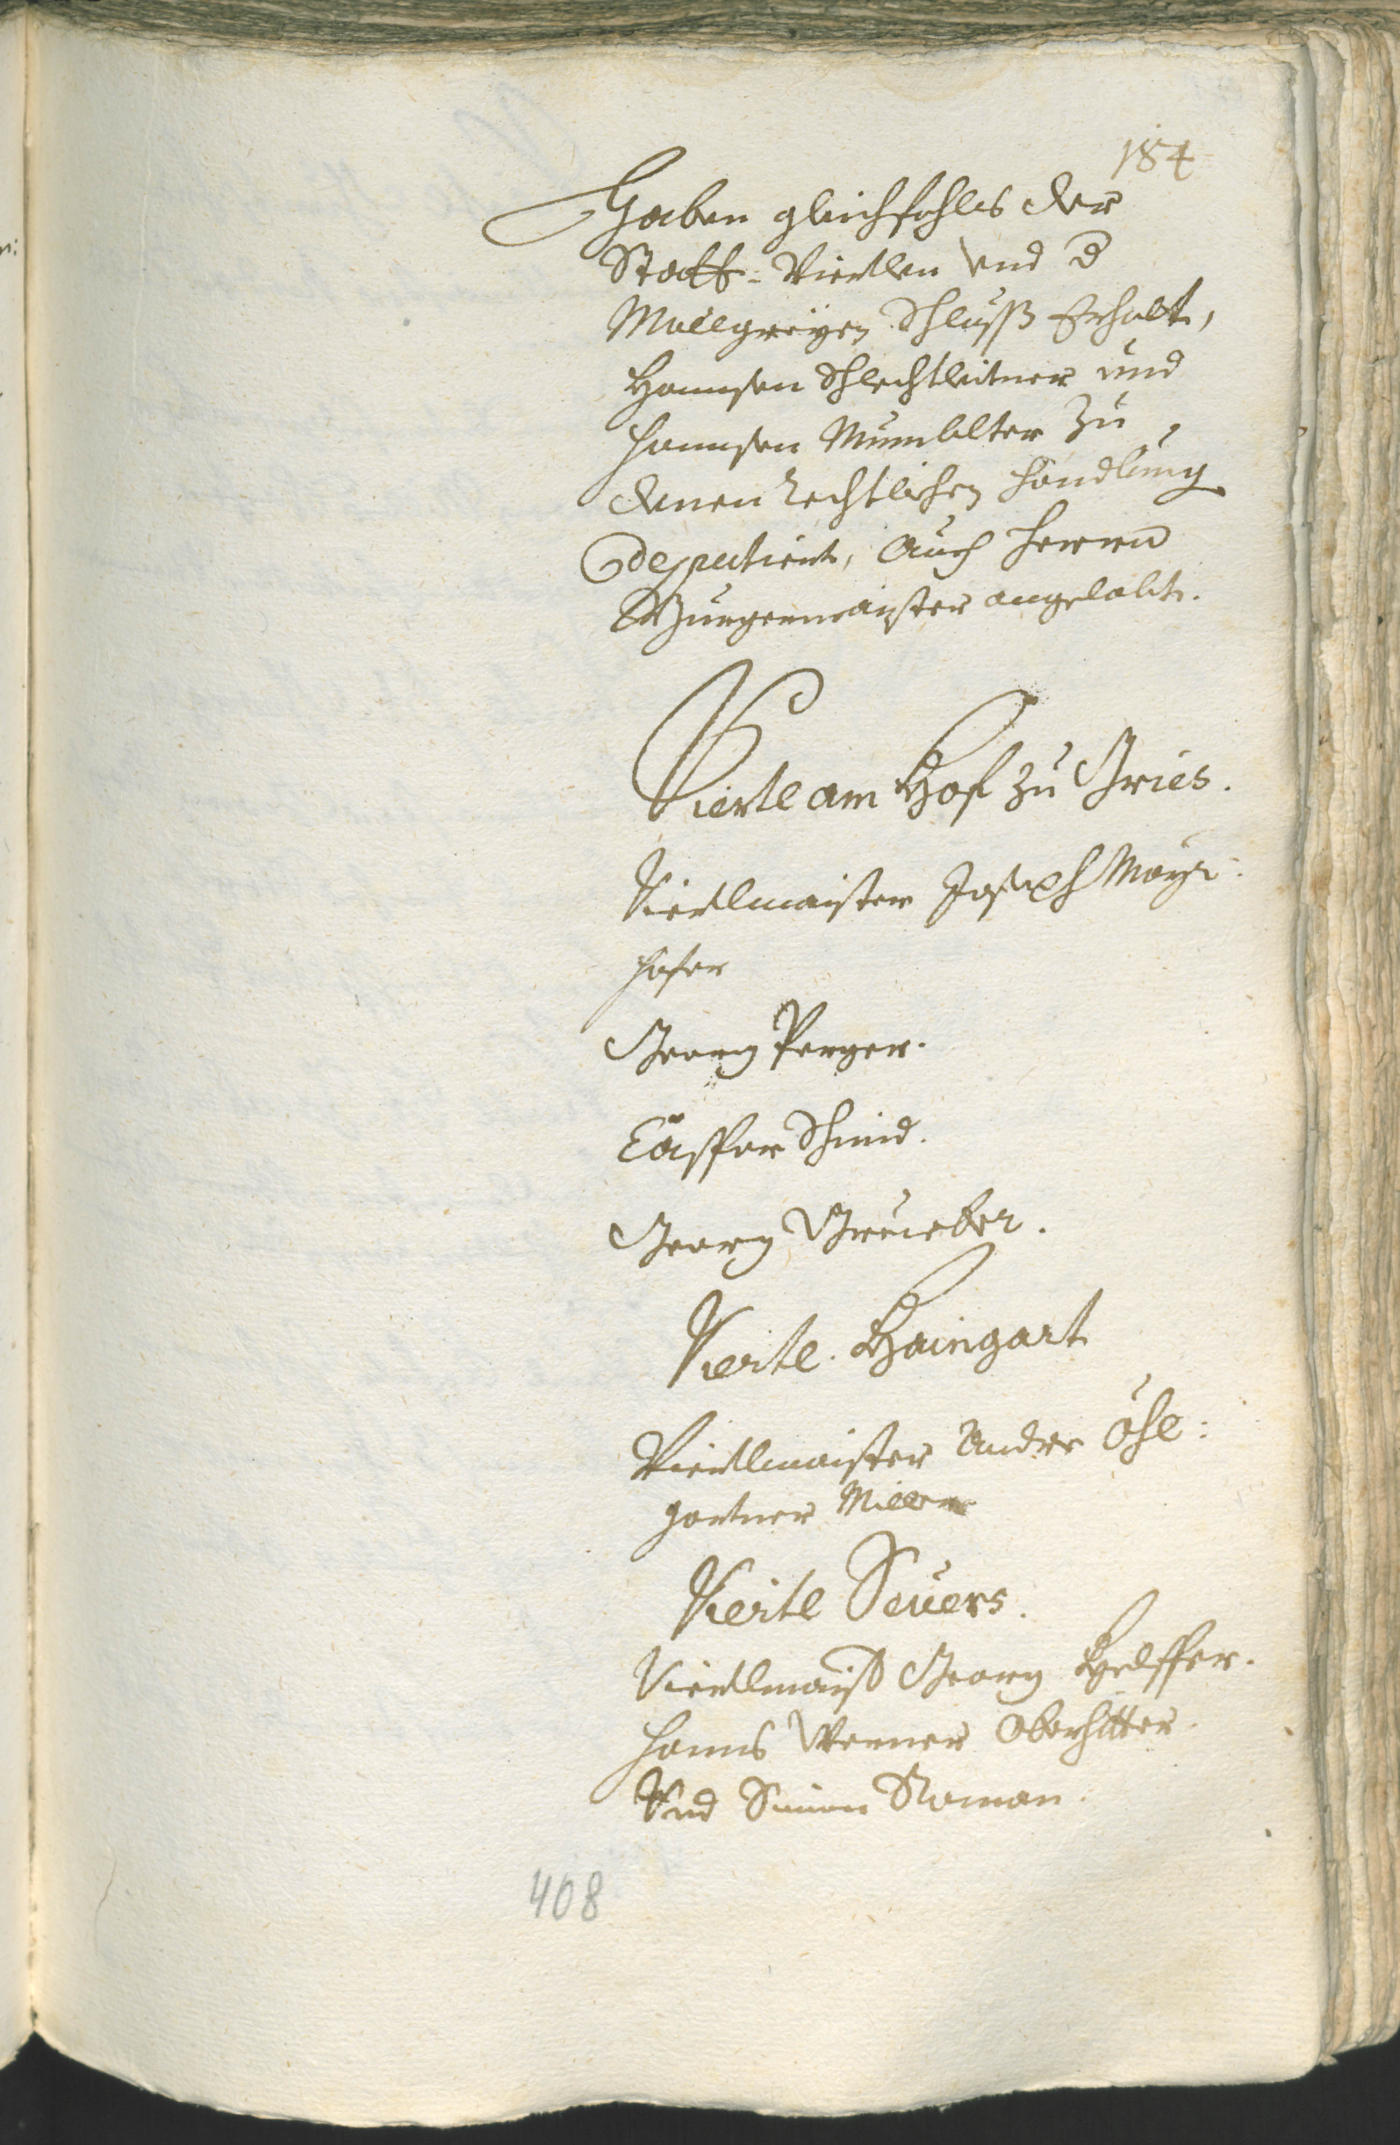 184
Haben gleichfahls der
Statt-Viertlen vnd d
Mallgreÿen Schluss Erhalt,
Hannsen Schlechtleitner und
Hannsen Mumelter zu
denen rechtlichen Handlung
deputiert, auch Herrn
Burgermaister angelobt.
Viertl am Hof zu Gries.
Viertlmaister Joseph Mayr-
hofer
Georg Perger.
Casspar Schmid.
Georg Grueber.
Viertl Haingart
Viertlmaister Andre Öhl:
gartner Miller
Viertl Severs.
Viertlmaistr Georg Helffer.
Hanns Werner Oberhitter.
Vnd Simon Roman.
408